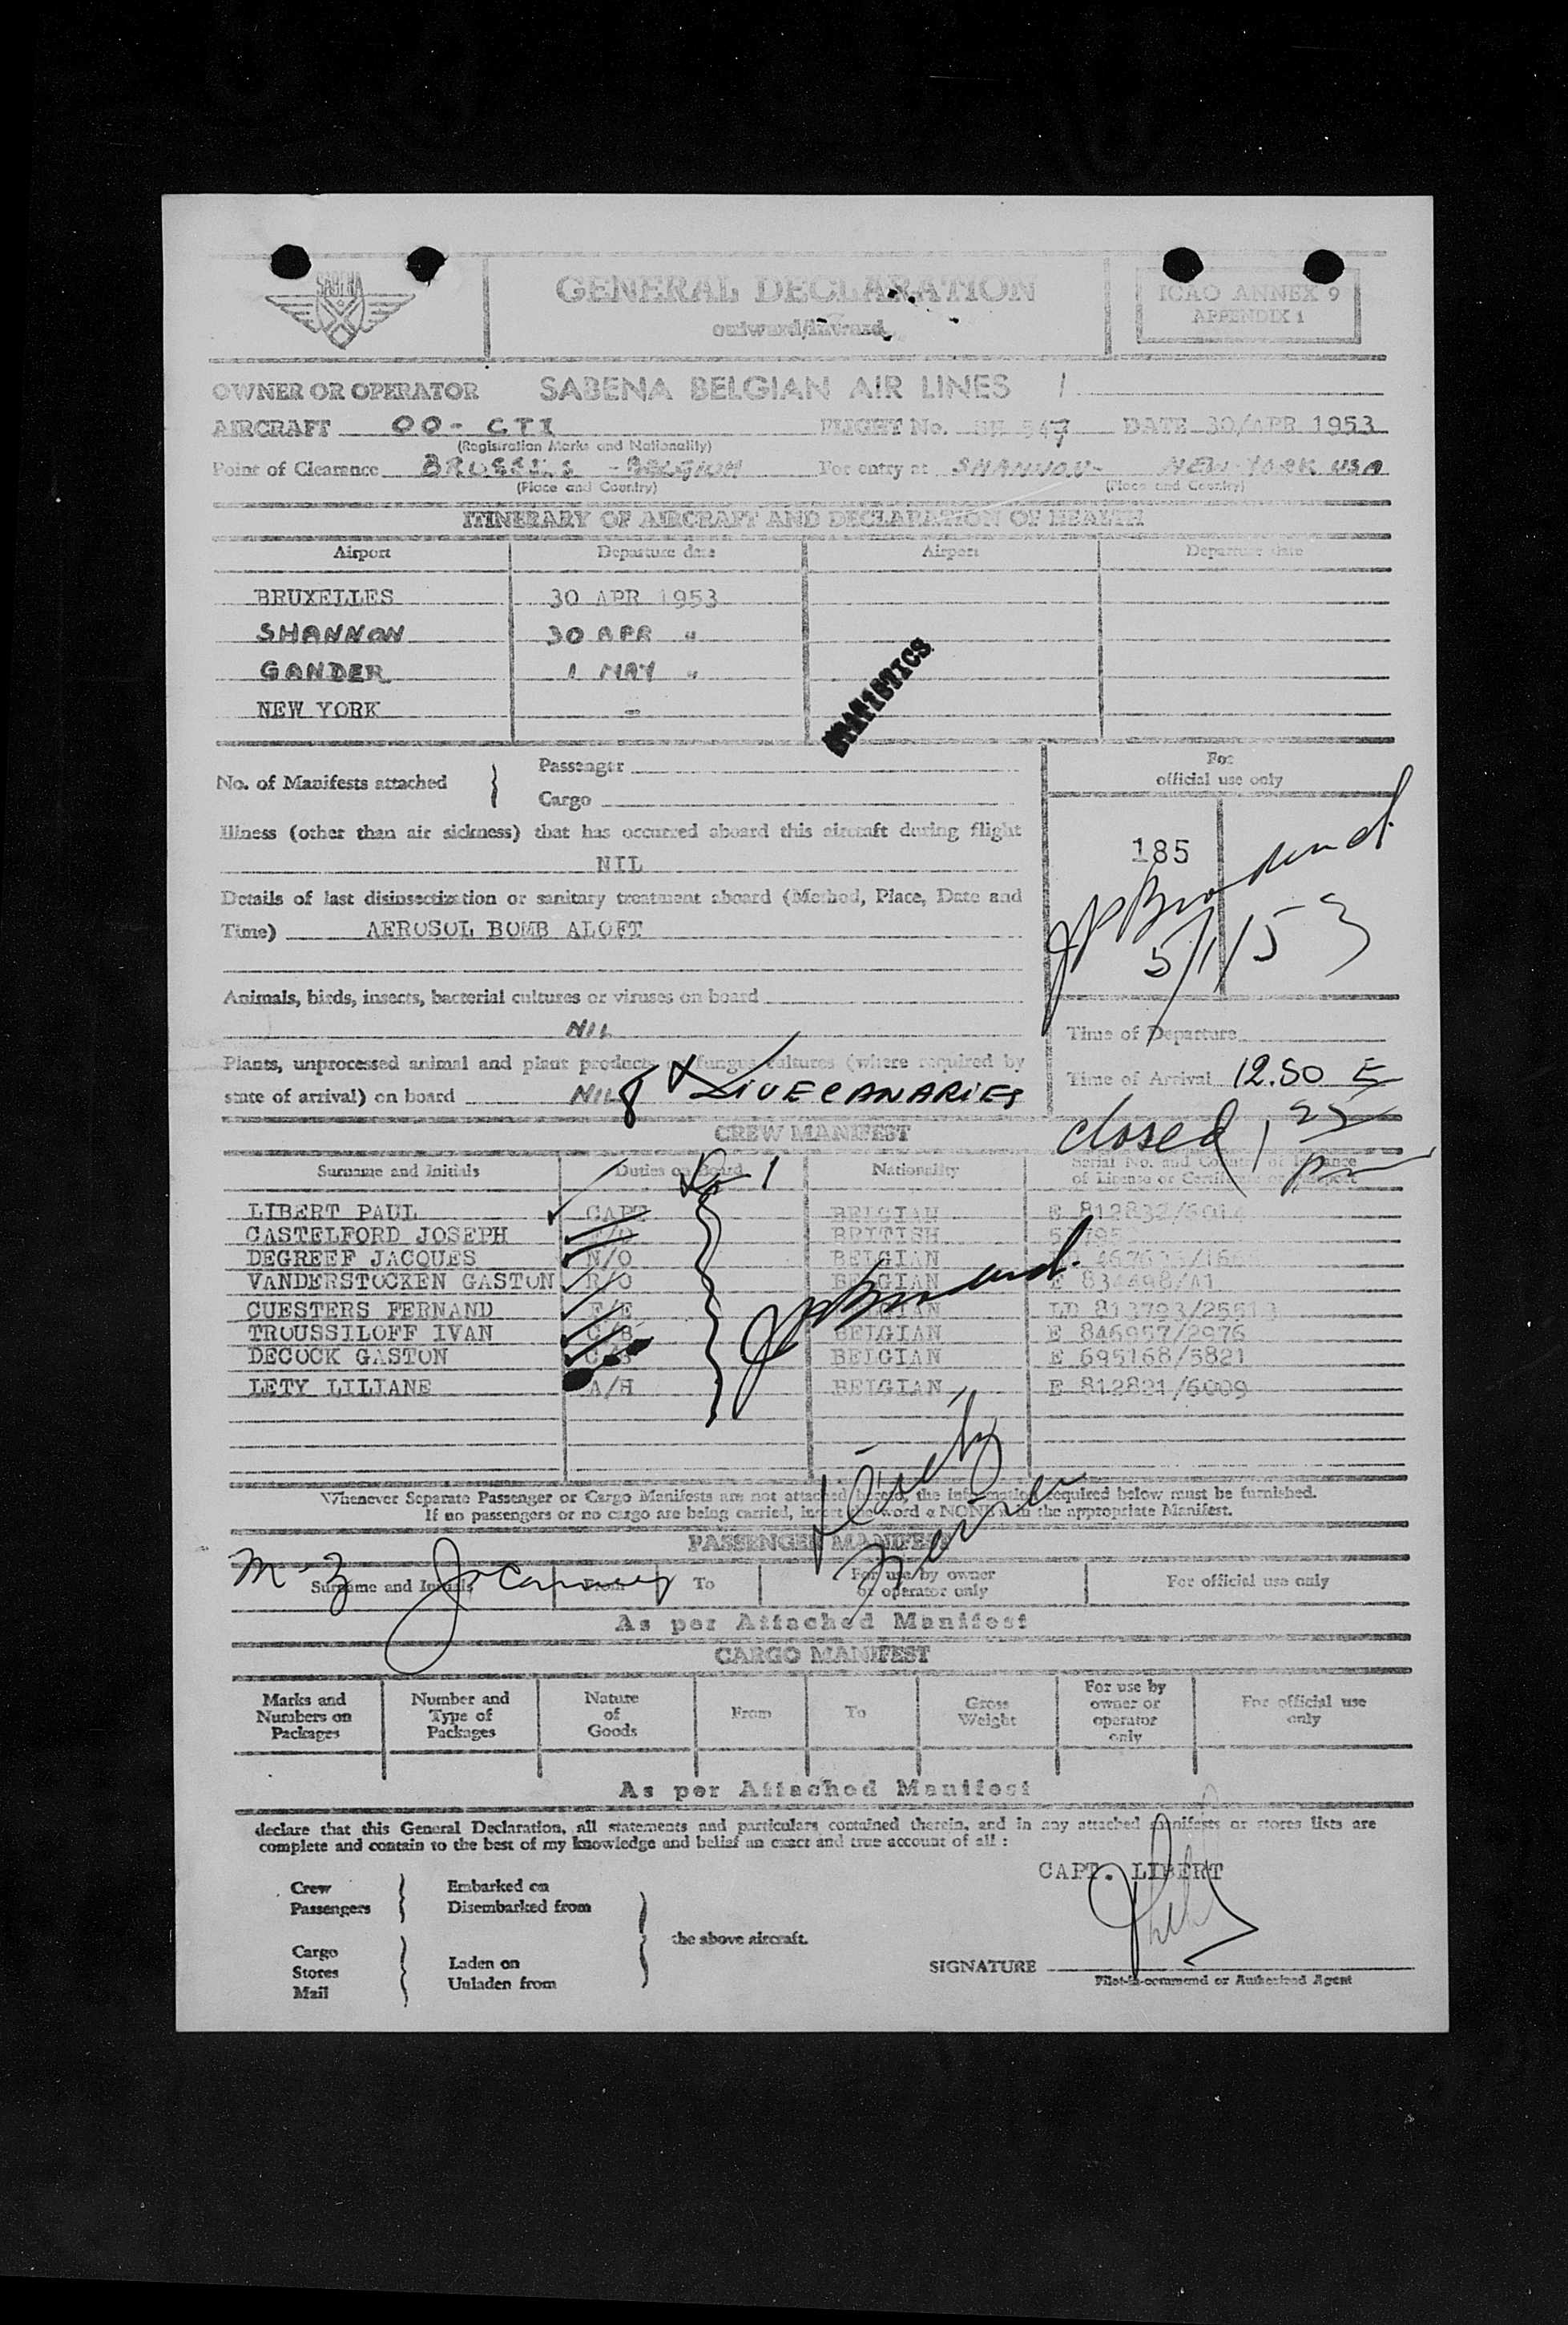 SABENA
GENERAL DECLARATION
outward/inward
ICAO ANNEX 9
APPENDIX 1
OWNER OR OPERATOR SABENA BELGIAN AIR LINES
AIRCRAFT OO-CTI FLIGHT No. DATE 30/APR 1953
(Registration Marks and Nationality)
Point of Clearance BRUSSELS - BELGIUM For entry at SHANNON- NEW YORK USA
(Place and Country) (Place and Country)
ITINERARY OF AIRCRAFT AND DECLARATION OF HEALTH
Airport Departure date Airport Departure date
BRUXELLES 30 APR 1953
SHANNON 30 APR "
GANDER 1 MAY "
NEW YORK -
STATISTICS
No. of Manifests attached
Passenger
Cargo
For
official use only
Illness (other than air sickness) that has occurred aboard this aircraft during flight
NIL
185
Details of last disinsectization or sanitary treatment aboard (Method, Place, Date and
Time) AEROSOL BOMB ALOFT
5/1/53
Animals, birds, insects, bacterial cultures or viruses on board
NIL
Time of Departure
Plants, unprocessed animal and plant products or fungus cultures (where required by
state of arrival) on board NIL 8 LIVE CANARIES
Time of Arrival 12.50
closed 1 25 pm
CREW MANIFEST
Surname and Initials Duties on Board Nationality Serial No. and Country of Issuance
of License or Certificate or Passport
LIBERT PAUL CAPT BELGIAN E 812832/6014
CASTELFORD JOSEPH F/O BRITISH
DEGREEF JACQUES N/O BELGIAN
VANDERSTOCKEN GASTON R/O BELGIAN E 834498/A1
CUESTERS FERNAND F/E BELGIAN LD 813793/25513
TROUSSILOFF IVAN C/B BELGIAN E 846957/2976
DECOCK GASTON C/B BELGIAN E 695168/5821
LETY LILIANE A/H BELGIAN E 812821/6009
Whenever Separate Passenger or Cargo Manifests are not attached hereto, the information required below must be furnished.
If no passengers or no cargo are being carried, insert the word « NONE » in the appropriate Manifest.
PASSENGER MANIFEST
Surname and Initials From To For use by owner
or operator only
For official use only
As per Attached Manifest
CARGO MANIFEST
Marks and
Numbers on
Packages
Number and
Type of
Packages
Nature
of
Goods
From
To
Gross
Weight
For use by
owner or
operator
only
For official use
only
As per Attached Manifest
declare that this General Declaration, all statements and particulars contained therein, and in any attached manifests or stores lists are
complete and contain to the best of my knowledge and belief an exact and true account of all :
CAPT. LIBERT
Crew
Passengers
Embarked on
Disembarked from
the above aircraft.
Cargo
Stores
Mail
Laden on
Unladen from
SIGNATURE
Pilot-in-command or Authorized Agent